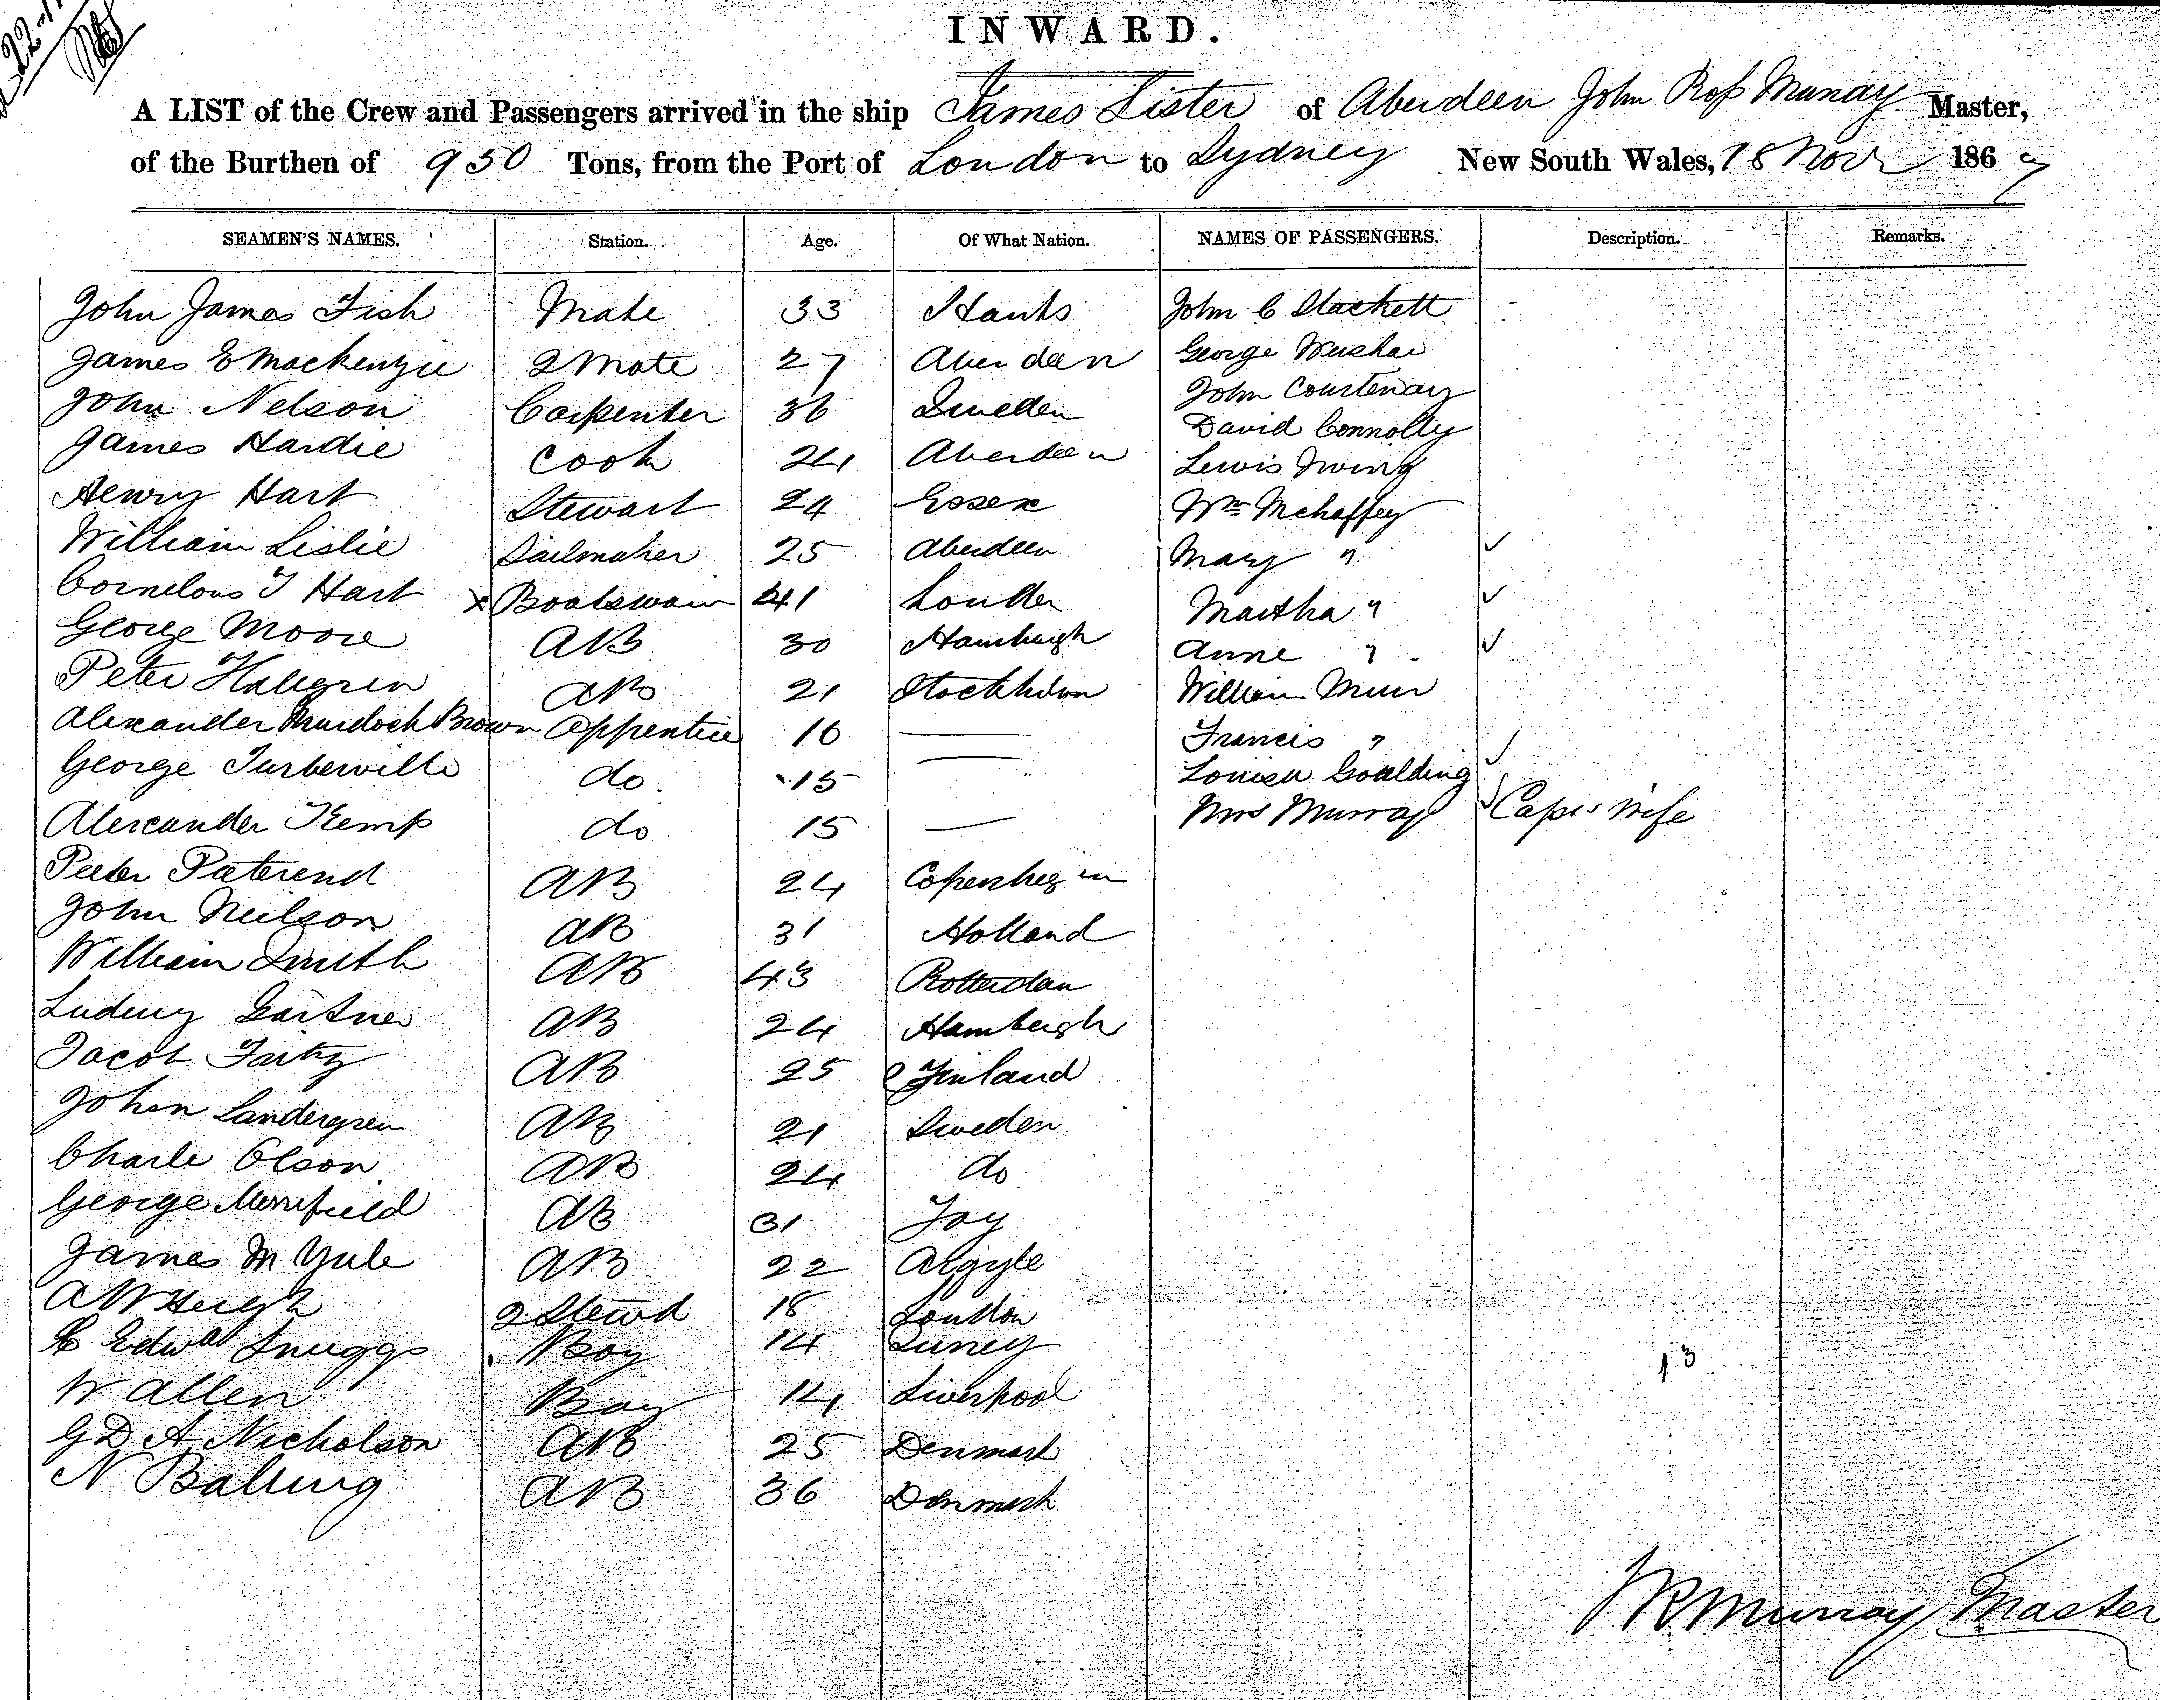 22-11
INWARD.
A LIST of the Crew and Passengers arrived in the ship James Lister of Aberdeen John Ross Murray Master,
of the Burthen of 950 Tons, from the Port of London to Sydney New South Wales, 18 Novr 1867
SEAMEN'S NAMES. Station. Age. Of What Nation. NAMES OF PASSENGERS. Description. Remarks.
John James Fish Mate 33 Hants John C Stackett
James E Mackenzie 2 Mate 27 Aberdeen George
John Nelson Carpenter 36 Sweden John Courtenay
David Connolly
James Hardie Cook 24 Aberdeen Lewis Irving
Henry Hart Stewart 24 Essex Wm Mehaffey
William Leslie Sailmaker 25 Aberdeen Mary " ✓
Cornelous J Hart x Boatswain 41 London Martha " ✓
George Moore AB 30 Hamburgh Anne " ✓
Peter Halegren AB 21 Stockholm William Muir
Alexander Murdoch Brown Apprentice 16 — Francis "
George Turberville do 15 — Louisa Goulding ✓
Alexander Kemp do 15 — Mrs Murray ✓ Capts Wife
Peter Paterend AB 24 Copenhegin
John Neilson AB 31 Holland
William Smith AB 43 Rotterdam
Ludwig Gartner AB 24 Hamburgh
Jacob AB 25 Finland
John Landergren AB 21 Sweden
Charle Olson AB 24 do
George Merrifield AB 31
James M Yule AB 22 Argyle
A W Hugh 2 Stewd 18 London
Edwd Snuggs Boy 14 Surrey
13
W Allen Boy 14 Liverpool
G D A Nicholson AB 25 Denmark
N Balling AB 36 Denmark
J R Murray Master